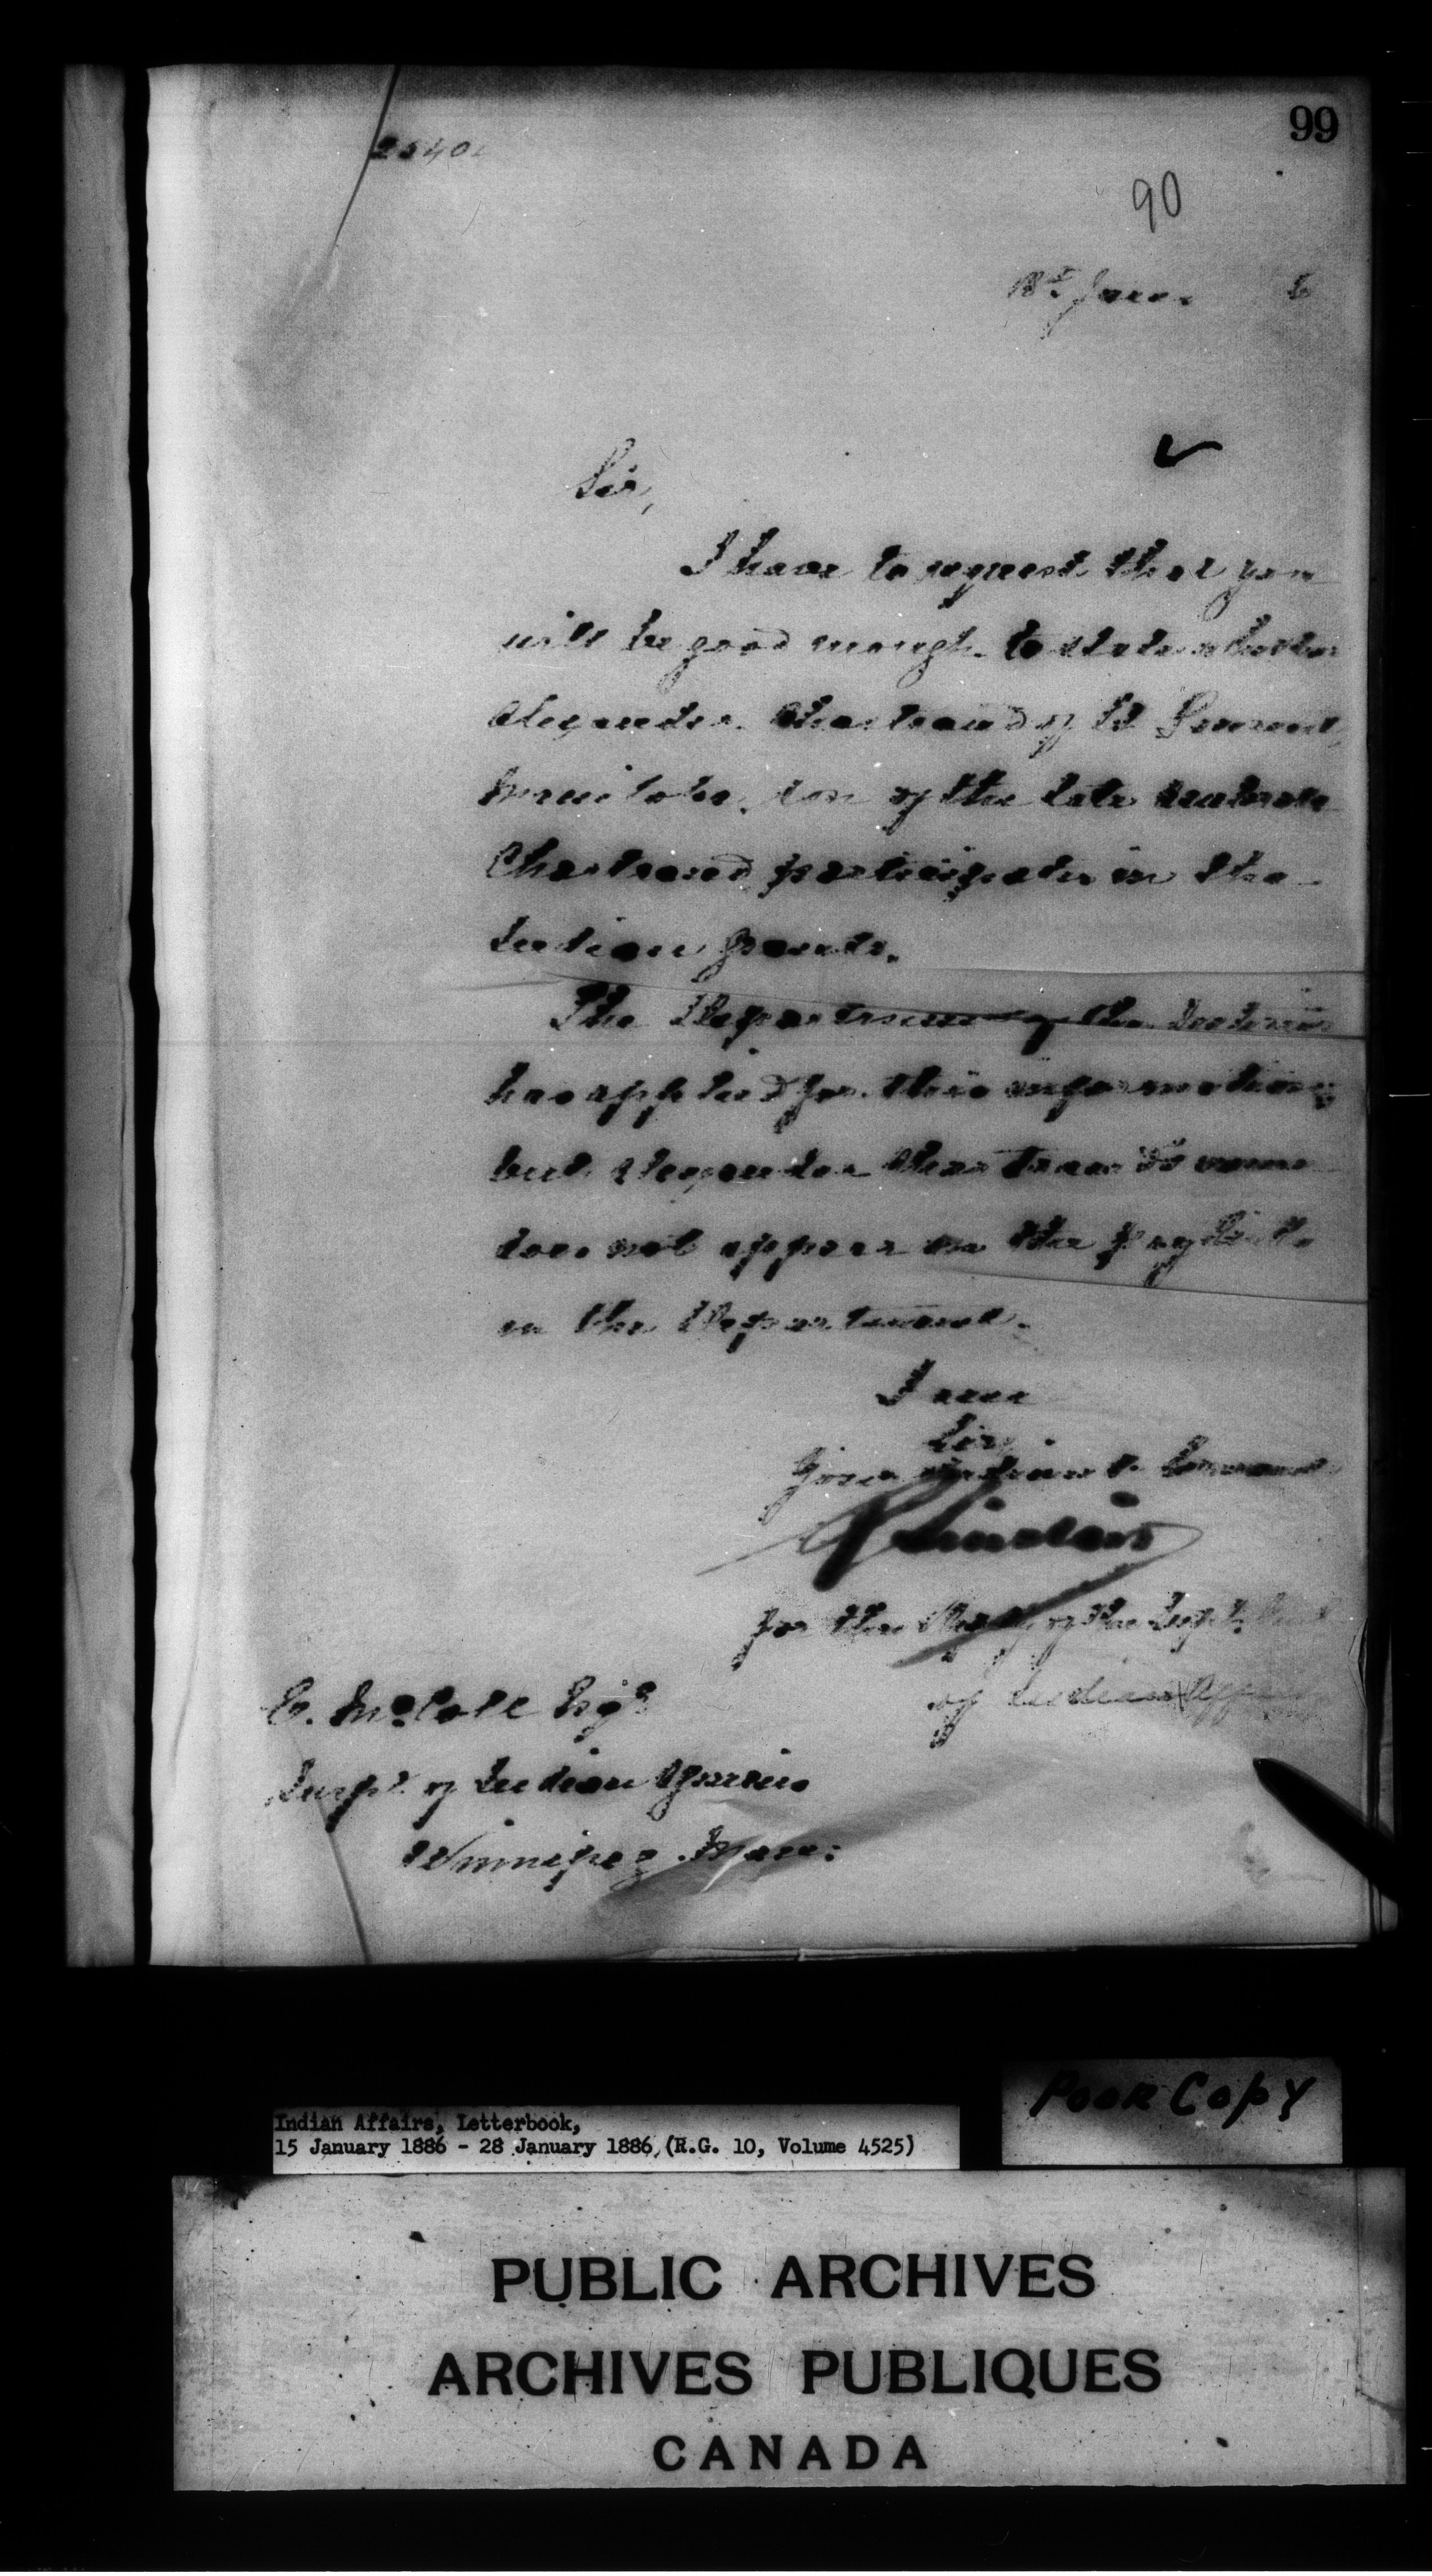 99
90
18th Jan. 6
Sir,
I have to request that you
will be good enough to state whether
Alexander Chartrand of St Laurent,
Manitoba, son of the late
Chartrand participates in the
Indian grants.
The Department of the Interior
has applied for this information,
but Alexander Chartrand's name
does not appear on the paylists
in the Department.
I am
Sir,
Your obedient Servant
R Sinclair
for the Depy of the Supt. Genl
of Indian Affairs
E. McColl Esqr
Inspr of Indian Agencies
Winnipeg. Man:
Poor Copy
Indian Affairs, Letterbook,
15 January 1886 - 28 January 1886, (R.G. 10, Volume 4525)
PUBLIC ARCHIVES
ARCHIVES PUBLIQUES
CANADA